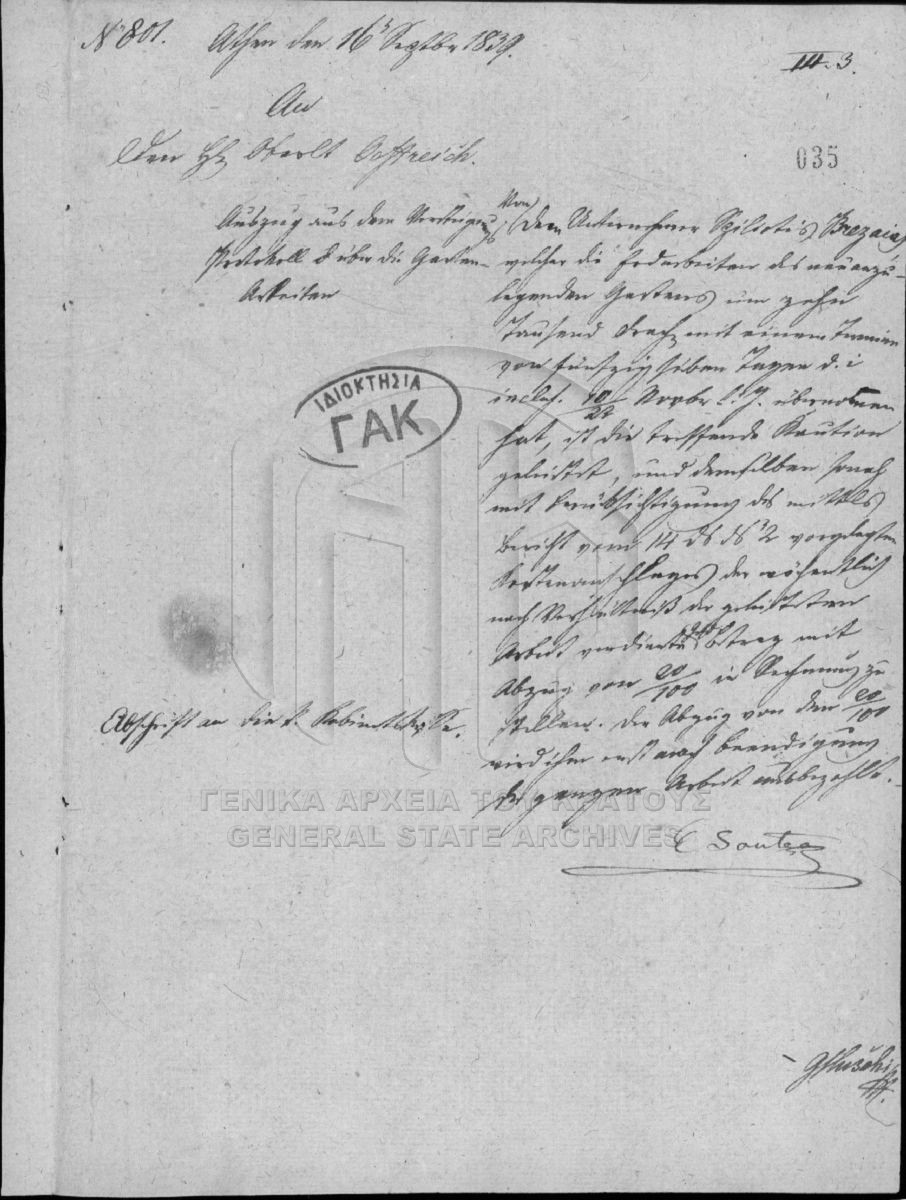 No 801. Athen den 16 Septbr 1839.
III. 3.
An
Den H. Oberlt Hoffreich.
035
Auszug aus dem
Protokoll über die Garten-
Arbeiten
Von
Dem Unternehmer Spiliotis Brezaias
welcher die Erdarbeiten des neuanzu-
legenden Gartens um zehn
Tausend Drach. mit einem Termin
von fünfzig sieben Tagen d. i
inclus. 10/22 Novbr l. J. übernommen
hat, ist die treffende Kaution
geleistet, und demselben sonach
mit Berücksichtigung des mittels
Bericht vom 14 ds vorgelegten
Kostenanschlages der wöchentlich
nach Verhältniß der geleisteten
Arbeit verdiente Betrag mit
Abzug von 20/100 in Rechnung zu
stellen. Der Abzug von den 20/100
wird ihm erst nach Beendigung
der ganzen Arbeit ausbezahlt.
Abschrift an die k. Kabinetskasse.
ΙΔΙΟΚΤΗΣΙΑ
ΓΑΚ
ΓΕΝΙΚΑ ΑΡΧΕΙΑ ΤΟΥ ΚΡΑΤΟΥΣ
GENERAL STATE ARCHIVES
C Soutzo